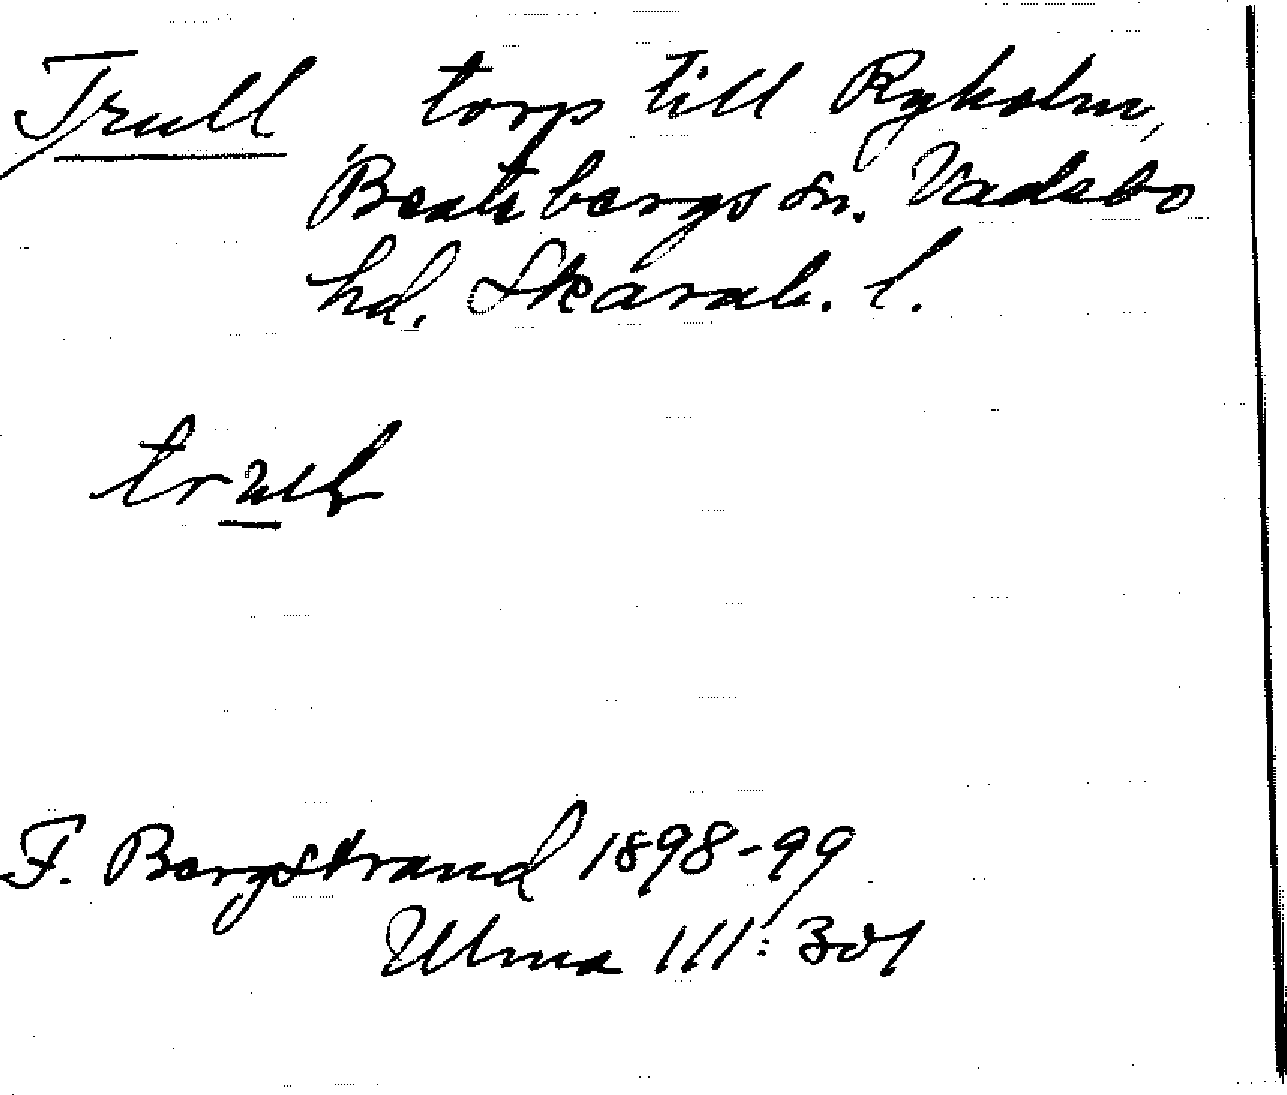 Trull torp till Ryholm,
Beatebergs sn. Vadsbo
hd. Skarab. l.
F. Bergstrand 1898-99
Ulma 111:301